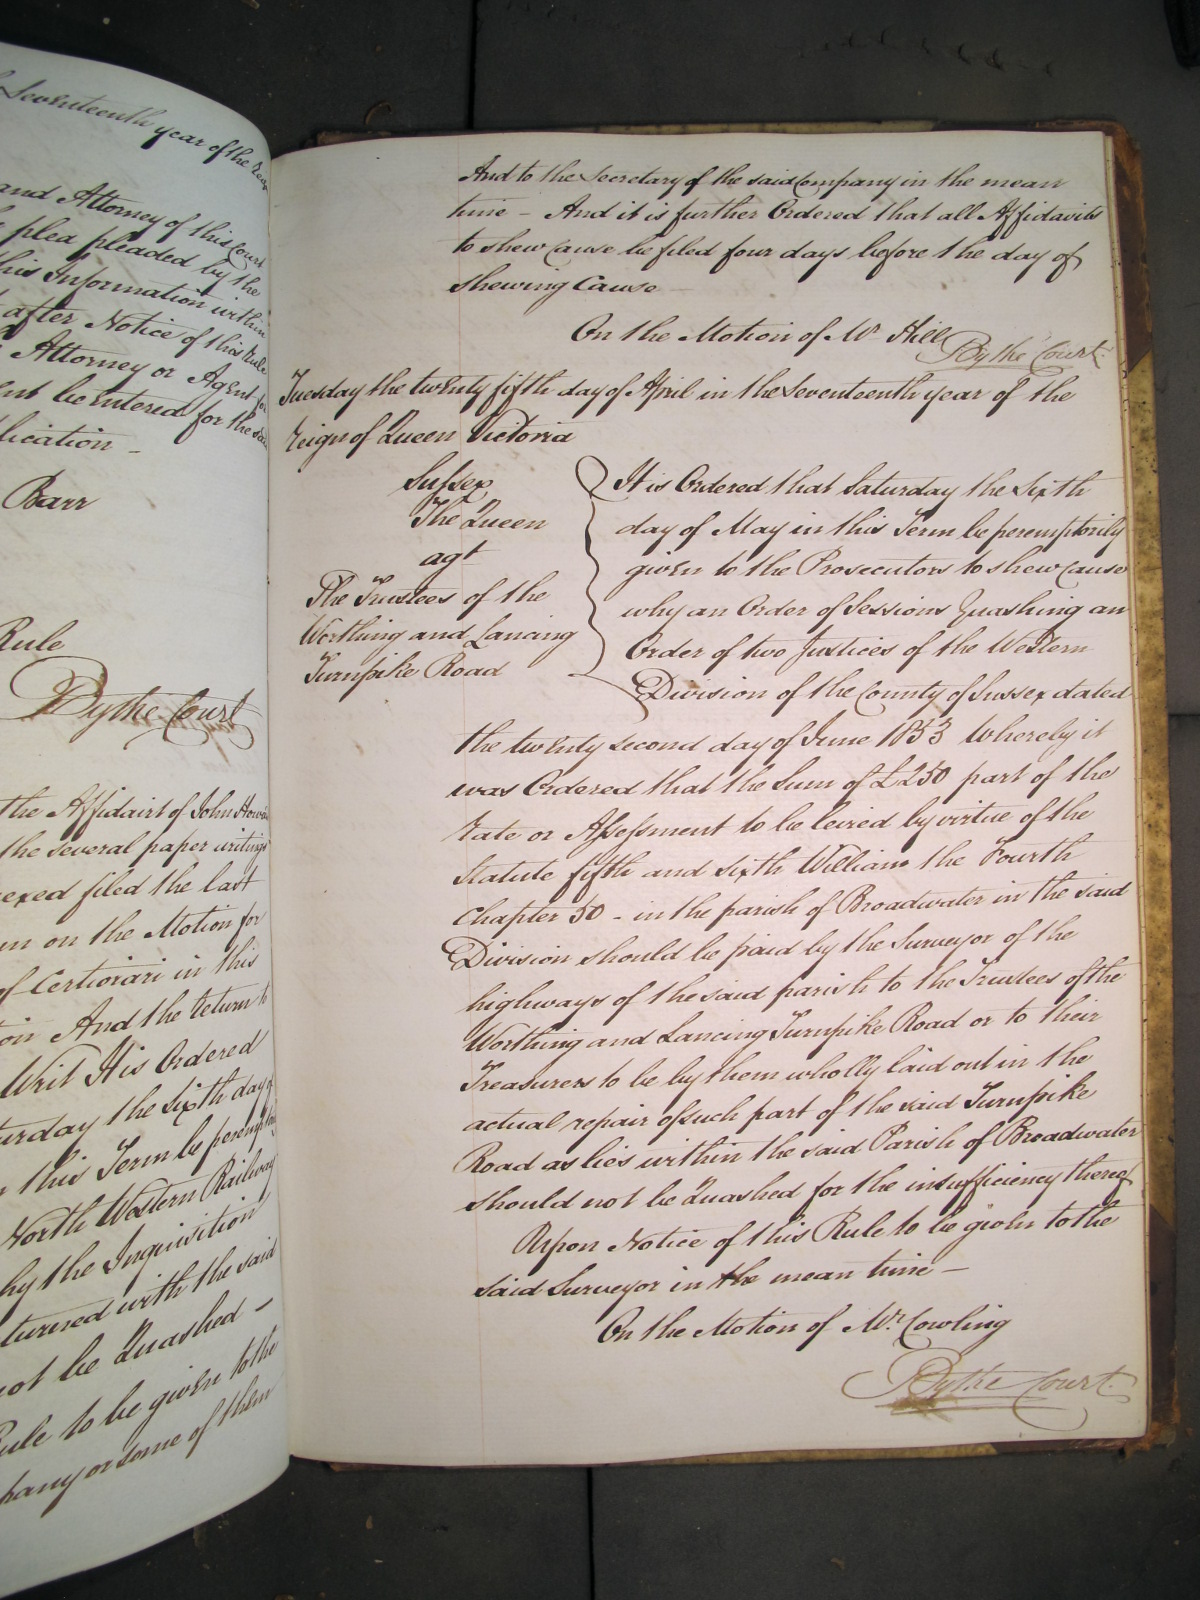 Seventeenth year of the
and Attorney of this Court
plea pleaded by the
this Information within
after Notice of this Rule
Attorney or Agent for
be entered for the said
lication -
Barr
Rule
By the Court
the Affidavit of John
the several paper writings
exed filed the last
on the Motion for
of Certiorari in this
And the return to
Writ It is Ordered
urday the sixth day of
this Term be
North Western Railway
the Inquisition
turned with the said
not be Quashed -
Rule to be given to the
pany or some of them
And to the Secretary of the said Company in the mean
time - And it is further Ordered that all Affidavits
to shew cause be filed four days before the day of
shewing Cause
On the Motion of Mr Hill
By the Court.
Tuesday the twenty fifth day of April in the seventeenth year of the
reign of Queen Victoria
Sussex
The Queen
agt
The Trustees of the
Worthing and Lancing
Turnpike Road
It is Ordered that Saturday the sixth
day of May in this Term be peremptorily
given to the Prosecutors to shew cause
why an Order of Sessions Quashing an
Order of two Justices of the Western
Division of the County of Sussex dated
the twenty second day of June 1853 Whereby it
was Ordered that the Sum of £250 part of the
rate or Assessment to be levied by virtue of the
statute fifth and sixth William the Fourth
Chapter 50 - in the parish of Broadwater in the said
Division should be paid by the Surveyor of the
highways of the said parish to the Trustees of the
Worthing and Lancing Turnpike Road or to their
Treasurers to be by them wholly laid out in the
actual repair of such part of the said Turnpike
Road as lies within the said Parish of Broadwater
should not be Quashed for the insufficiency thereof
Upon Notice of this Rule to be given to the
said Surveyor in the mean time -
On the Motion of Mr. Cowling
By the Court.